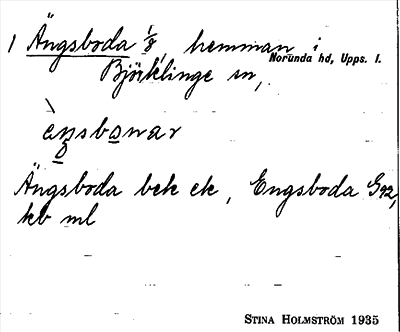 1 Ängsboda 1/8, hemman i
Norunda hd, Upps. l.
Björklinge sn,
ènsbowar
Ängsboda bek ek, Engsboda G92,
kb ml
STINA HOLMSTRÖM 1935